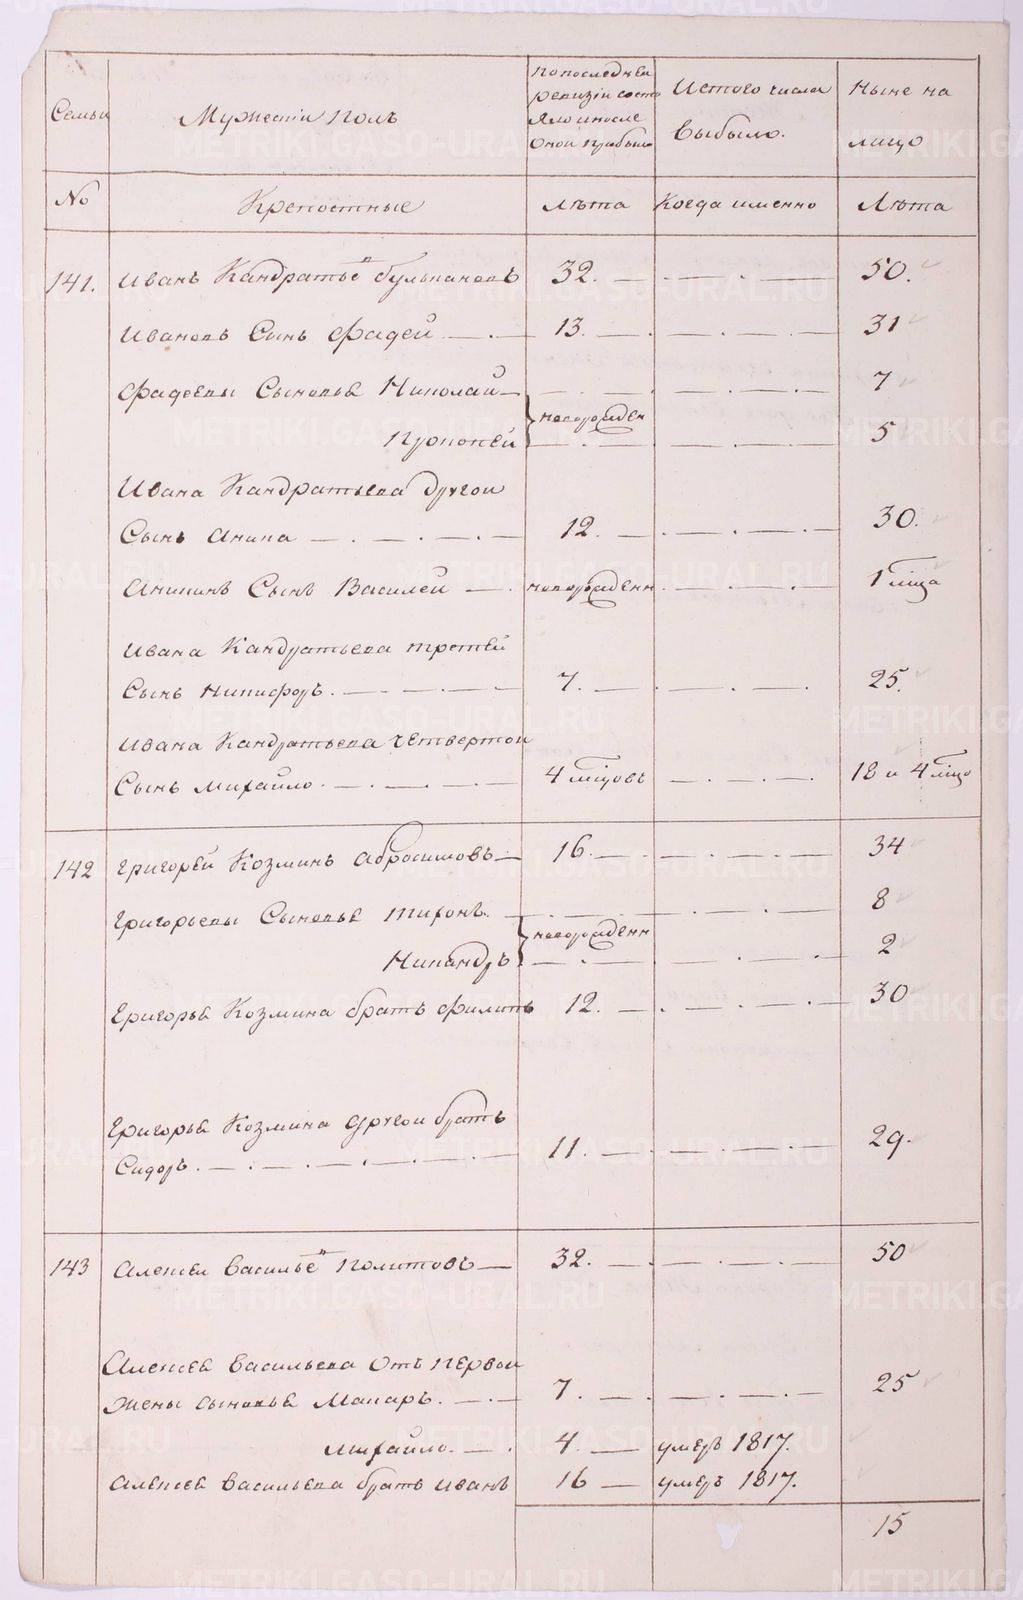 Семьи
Мужескій полъ
По последней
ревизіи состо
яло и после
оной прибыло
Из того числа
выбыло.
Ныне на
лицо
No
Крепостные
Лѣта
Когда именно
Лѣта
141. Иванъ Кандратьевъ 32. 50.
Ивановъ Сынъ Фадей 13. 31
Фадеевы Сыновья Николай 7
новорожден
Прокопей 5
Ивана Кандратьева другой
Сынъ Аника 12. 30.
Аникинъ Сынъ Василей новорожденн 1 мца
Ивана Кандратьева третей
Сынъ Никифоръ. 7. 25.
Ивана Кандратьева четвертой
Сынъ Михайло. 4 мцовъ 18 и 4 мцо
142 Григорей Козминъ Абросимовъ 16. 34
Григорьевы Сыновья Тихонъ. 8
новорожденн
Никандръ 2
Григорья Козмина братъ Филипъ 12. 30
Григорья Козмина другой братъ
Сидоръ. 11. 29.
143 Алексей Васильевъ Политовъ 32. 50
Алексея Васильева отъ первой
жены сыновья Макаръ. 7. 25
Михайло. 4. умеръ 1817.
Алексея Васильева братъ Иванъ 16 умеръ 1817.
15
METRIKI.GASO-URAL.RU